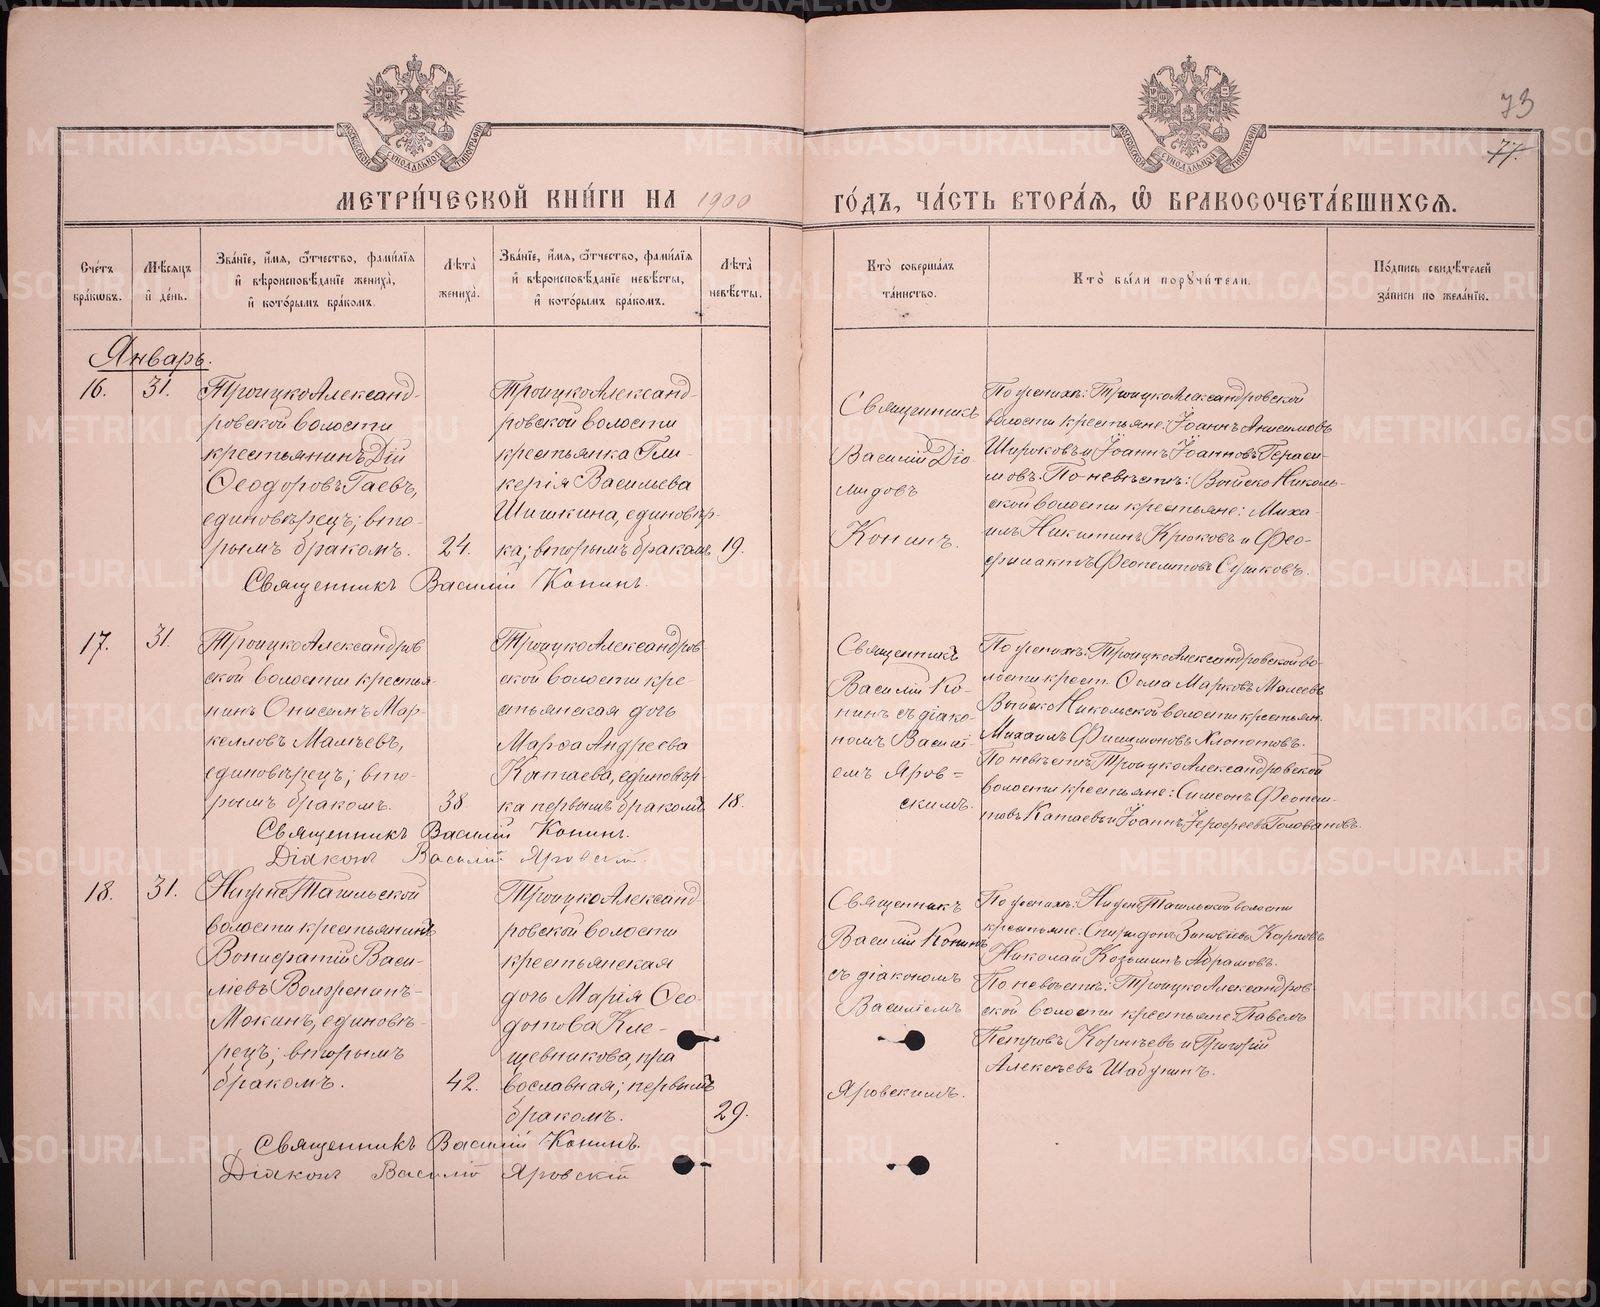 73
77.
МЕТРИ́ЧЕСКОЙ КНИ́ГИ НА 1900 ГО́ДЪ, ЧА́СТЬ ВТОРА́Я, Ѡ БРАКОСОЧЕТА́ВШИХСЯ.
Сче́тъ бра́кωвъ.
Мѣ́сяцъ и де́нь.
Зва́нїе, и́мя, ѻ́тчество, фами́лїя и вѣроисповѣ́данїе жениха̀, и кото́рымъ бра́комъ.
Лѣта̀ жениха̀.
Зва́нїе, и́мя, ѻ́тчество, фами́лїя и вѣроисповѣ́данїе невѣ́сты, и кото́рымъ бра́комъ.
Лѣта̀ невѣ́сты.
Кто̀ соверша́лъ та́инство.
Кто̀ бы́ли порꙋчи́тели.
По́дпись свидѣ́телей за́писи по жела́нїю.
Январь.
16.
31.
Троицко Александ-
ровской волости
крестьянинъ Дій
Ѳеодоровъ Гаевъ,
единовѣрецъ; вто-
рымъ бракомъ.
24.
Троицко Александ-
ровской волости
крестьянка Гли-
керія Васильева
Шишкина, единовѣр-
ка; вторымъ бракомъ
19.
Священникъ
Василій Діо-
мидовъ
Конинъ.
По женихѣ: Троицко Александровской
волости крестьяне: Іоаннъ Анисимовъ
Широковъ и Іоаннъ Іоанновъ Гераси-
мовъ. По невѣстѣ: Выйско Николь-
ской волости крестьяне: Миха-
илъ Никитинъ Крюковъ и Ѳео-
филактъ Ѳеопемптовъ Сушковъ.
Священникъ Василій Конинъ.
17.
31.
Троицко Александров
ской волости крестья-
нинъ Онисимъ Мар-
келловъ Мамѣевъ,
единовѣрецъ; вто-
рымъ бракомъ.
38.
Троицко Александров
ской волости кре-
стьянская дочь
Марѳа Андреева
Катаева, единовѣр-
ка первымъ бракомъ
18.
Священникъ
Василій Ко-
нинъ съ діако-
номъ Васили-
емъ Яров=
скимъ.
По женихѣ: Троицко Александровской во-
лости крест. Ѳома Марковъ
Выйско Никольской волости крестьян.
Михаилъ Филимоновъ Хлопотовъ.
По невѣстѣ Троицко Александровской
волости крестьяне: Симеонъ Ѳеопем-
товъ Катаевъ и Іоаннъ Іероѳеевъ Головановъ.
Священникъ Василій Конинъ.
Діаконъ Василій Яровскій.
18.
31.
Нижне Тагильской
волости крестьянинъ
Вонифатій Васи-
ліевъ Воложенинъ-
Мокинъ, единовѣ-
рецъ; вторымъ
бракомъ.
42.
Троицко Александ
ровской волости
крестьянская
дочь Марія Ѳео-
дотова Кле-
щевникова, пра
вославная; первымъ
бракомъ.
29.
Священникъ
Василій Конинъ
съ діакономъ
Василіемъ
Яровскимъ.
По женихѣ: Нижне Тагильской волости
крестьяне: Спиридонъ Зиновіевъ Карповъ
Николай Козьминъ Абрамовъ.
По невѣстѣ: Троицко Александров-
ской волости крестьяне: Павелъ
Петровъ Корнѣевъ и Григорій
Алексѣевъ Шабунинъ.
Священникъ Василій Конинъ.
Діаконъ Василій Яровскій
METRIKI.GASO-URAL.RU